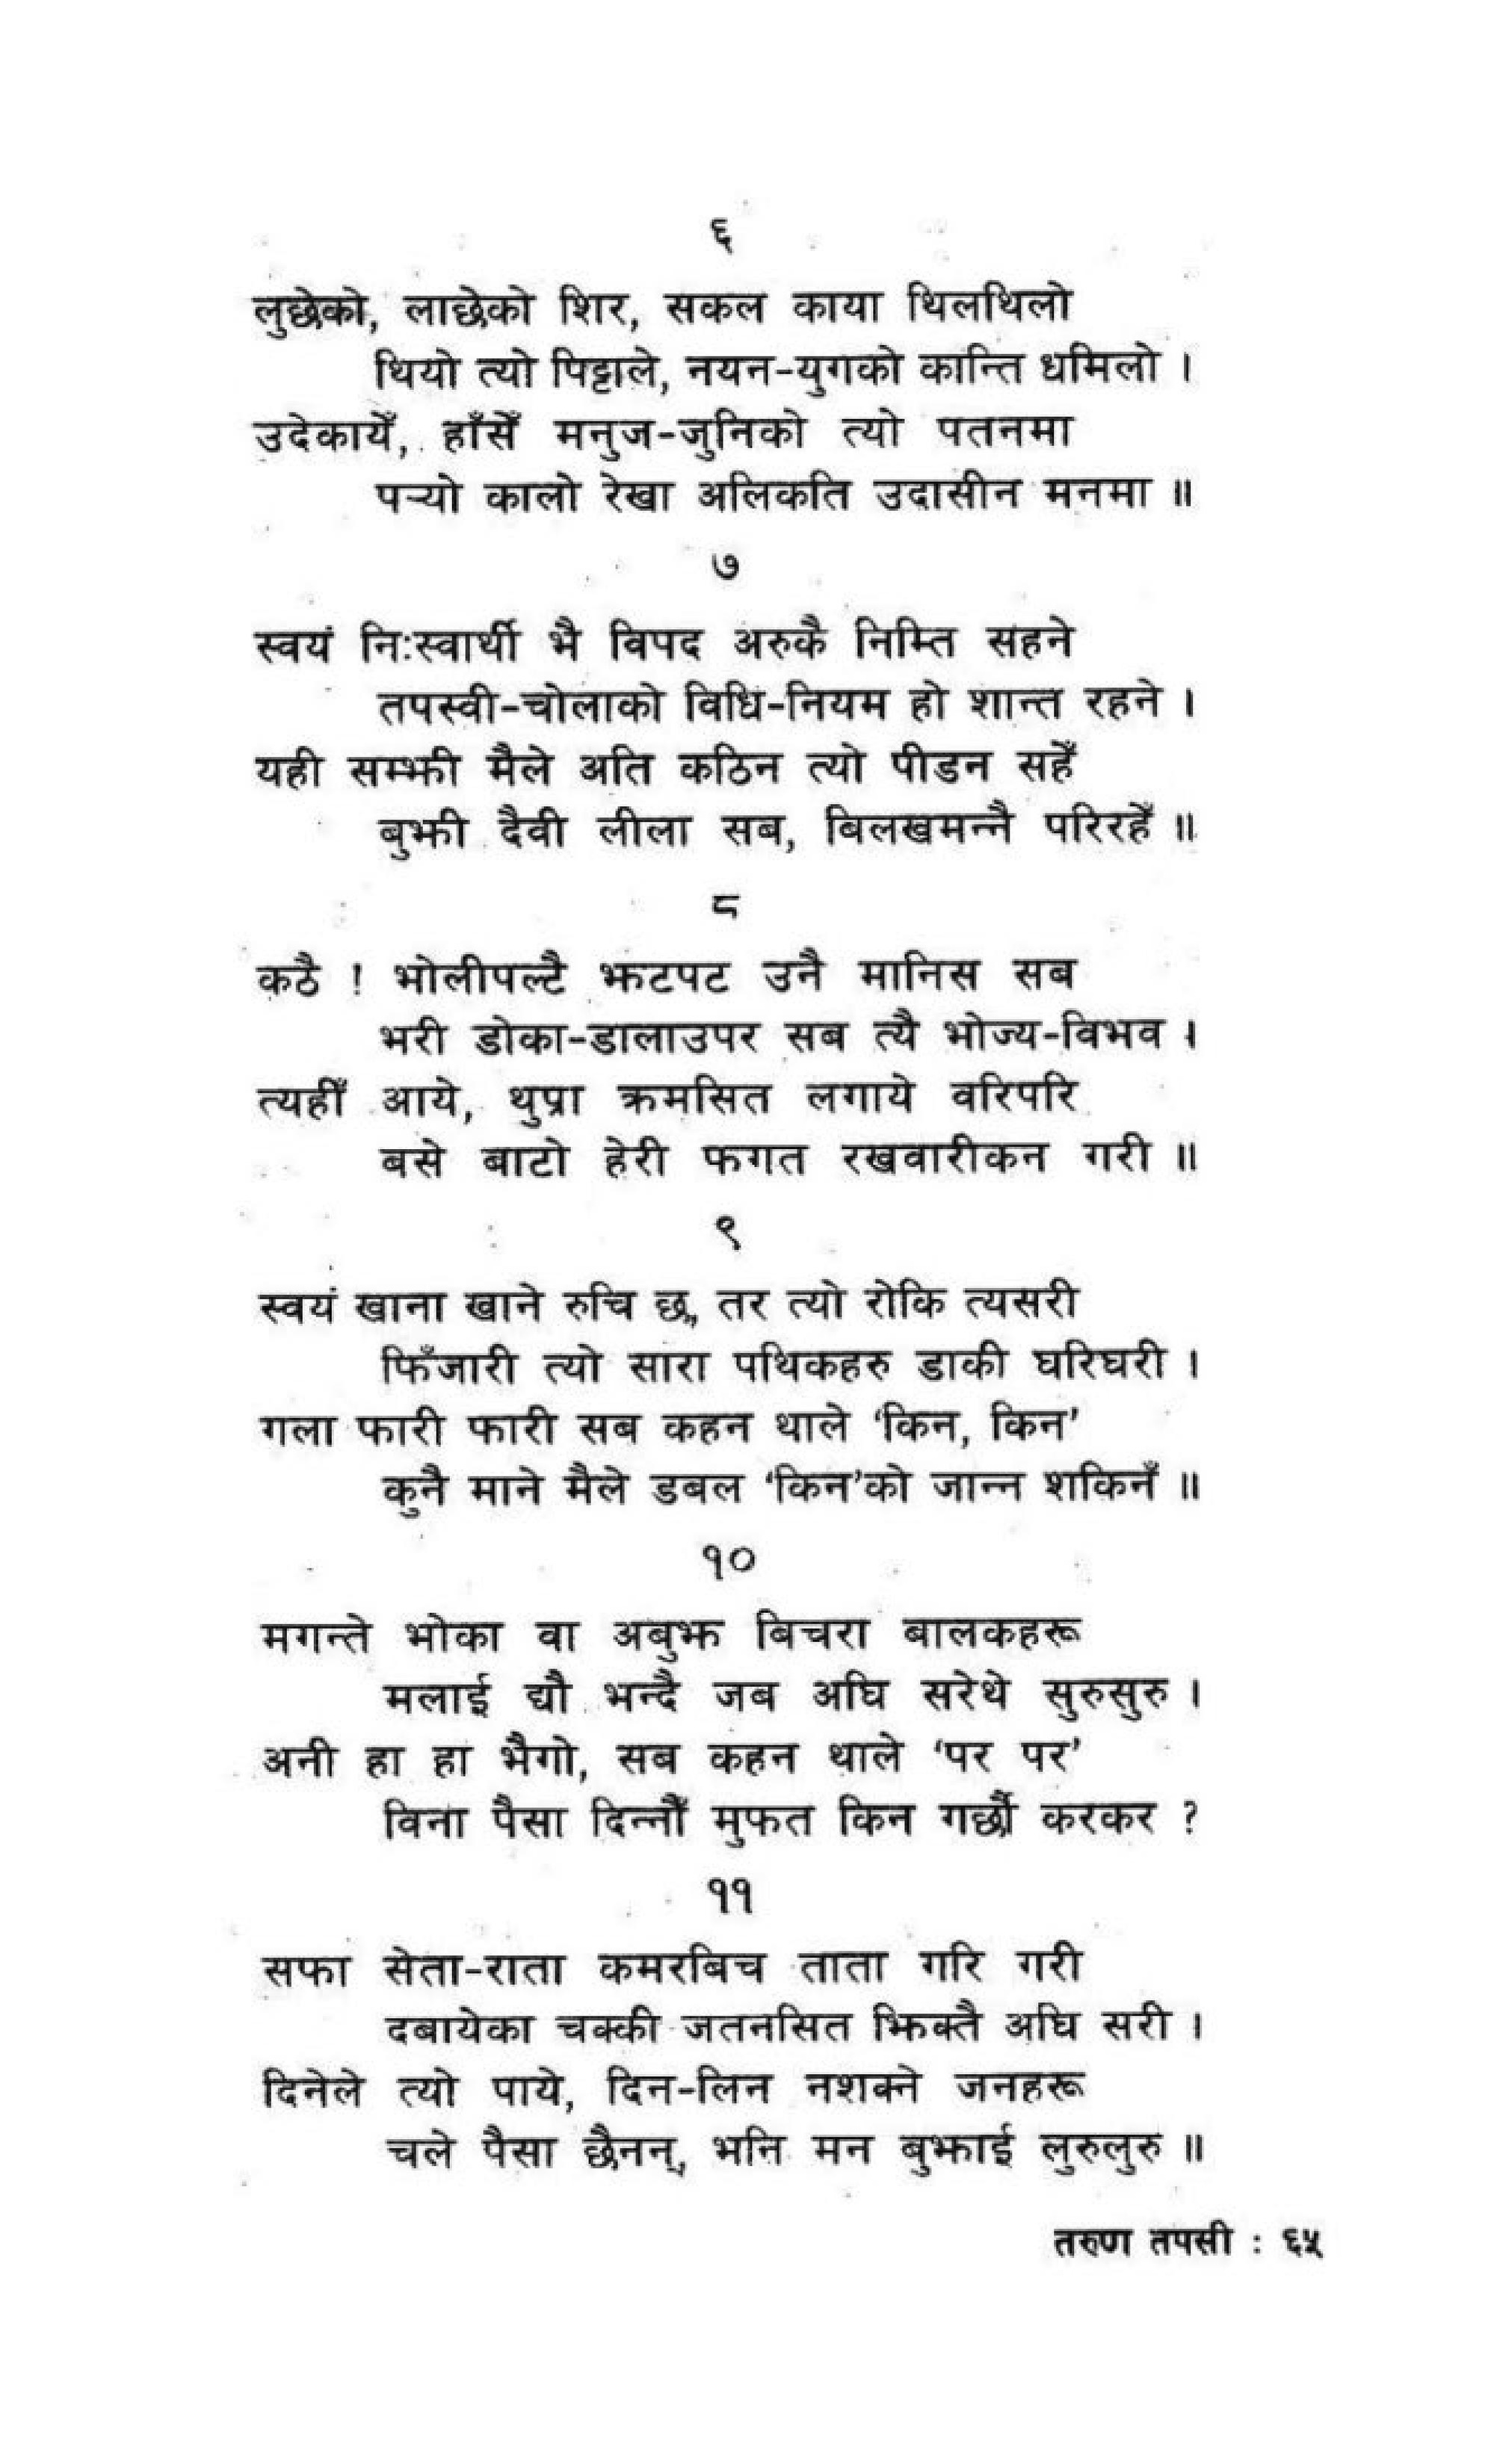 ६
लुछेको, लाछेको शिर, सकल काया थिलथिलो
थियो त्यो पिट्टाले, नयन-युगको कान्ति धमिलो ।
उदेकायेँ, हाँसेँ मनुज-जुनिको त्यो पतनमा
पऱ्यो कालो रेखा अलिकति उदासीन मनमा ॥
७
स्वयं निःस्वार्थी भै विपद अरुकै निम्ति सहने
तपस्वी-चोलाको विधि-नियम हो शान्त रहने ।
यही सम्झी मैले अति कठिन त्यो पीडन सहेँ
बुझी दैवी लीला सब, बिलखमन्नै परिरहेँ ॥
८
कठै ! भोलीपल्टै झटपट उनै मानिस सब
भरी डोका-डालाउपर सब त्यै भोज्य-विभव ।
त्यहीँ आये, थुप्रा क्रमसित लगाये वरिपरि
बसे बाटो हेरी फगत रखवारीकन गरी ॥
९
स्वयं खाना खाने रुचि छ, तर त्यो रोकि त्यसरी
फिँजारी त्यो सारा पथिकहरु डाकी घरिघरी ।
गला फारी फारी सब कहन थाले ‘किन, किन’
कुनै माने मैले डबल ‘किन’को जान्न शकिनँ ॥
१०
मगन्ते भोका वा अबुझ बिचरा बालकहरू
मलाई द्यौ भन्दै जब अघि सरेथे सुरुसुरु ।
अनी हा हा भैगो, सब कहन थाले ‘पर पर’
विना पैसा दिन्नौँ मुफत किन गर्छौ करकर ?
११
सफा सेता-राता कमरबिच ताता गरि गरी
दबायेका चक्की जतनसित झिक्तै अघि सरी ।
दिनेले त्यो पाये, दिन-लिन नशक्ने जनहरू
चले पैसा छैनन्, भनि मन बुझाई लुरुलुरु ॥
तरुण तपसी : ६५